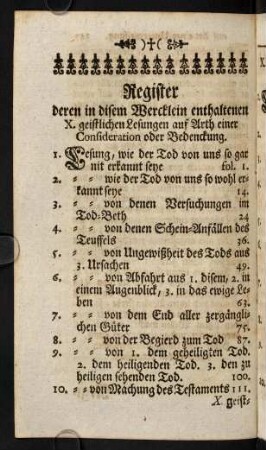 )†(
Register
deren in disem Wercklein enthaltenen
X. geistlichen Lesungen auf Arth einer
Consideration oder Bedenckung.
1. Lesung, wie der Tod von uns so gar
nit erkannt seye fol. 1.
2. = = wie der Tod von uns so wohl er=
kannt seye 14.
3. = = von denen Versuchungen im
Tod=Beth 24
4. = = von denen Schein=Anfällen des
Teuffels 36.
5. = = von Ungewißheit des Tods aus
3. Ursachen 49.
6. = = von Abfahrt aus 1. disem, 2. in
einem Augenblick, 3. in das ewige Le=
ben 63.
7. = = von dem End aller zergängli=
chen Güter 75.
8. = = von der Begierd zum Tod 87.
9. = = von 1. dem geheiligten Tod.
2. dem heiligenden Tod. 3. den zu
heiligen sehenden Tod. 100.
10. = = von Machung des Testaments 111.
X. geist=